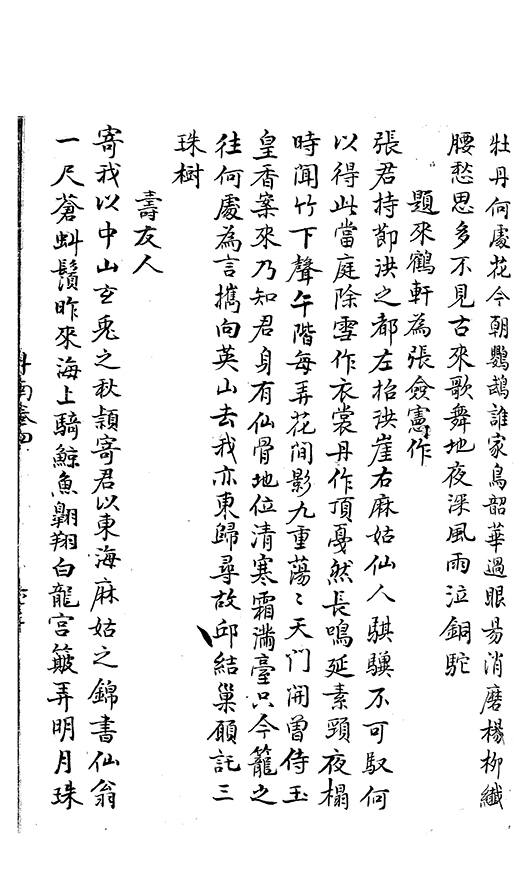 牡丹何處花今朝鸚鵡誰家鳥韶華過眼易消磨楊柳纖
腰愁思多不見古來歌舞地夜深風雨泣銅駝
題來鶴軒為張僉憲作
張君持節洪之都左招洪崖右麻姑仙人騏驥不可馭何
以得此當庭除雪作衣裳丹作頂戛然長鳴延素頸夜榻
時聞竹下聲午階每弄花間影九重蕩〻天门開曾侍玉
皇香案來乃知君身有仙骨地位清寒霜滿臺只今籠之
往何處為言擕向英山去我亦東歸尋故邱結巢願託三
珠樹
壽友人
寄我以中山玄兎之秋頴寄君以東海麻姑之錦書仙翁
一尺蒼虯鬚昨來海上騎鯨魚翺翔白龍宫簸弄明月珠